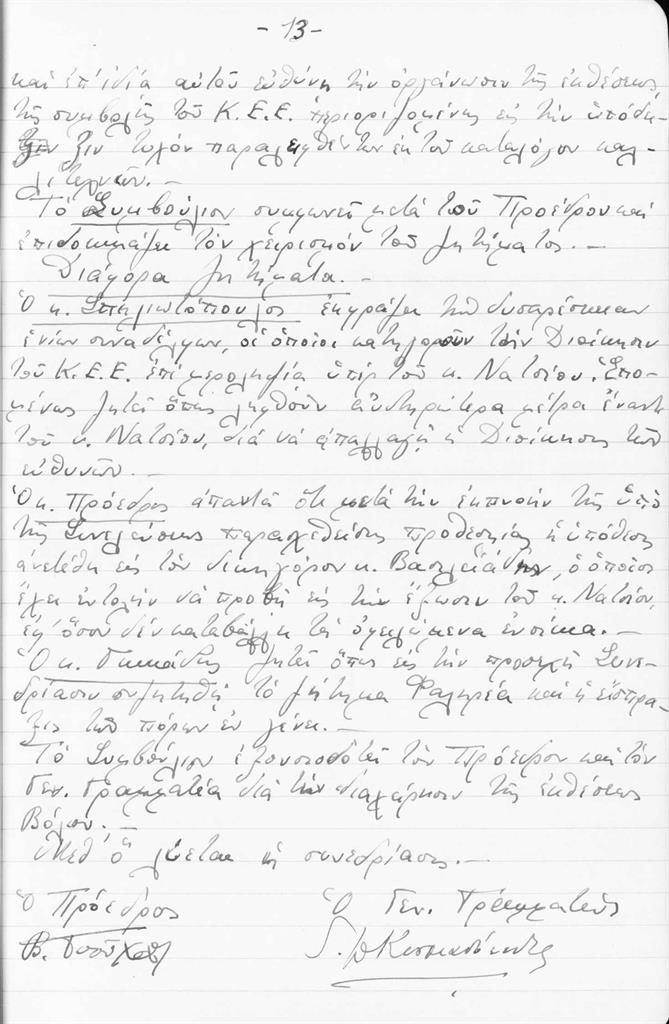 - 13 -
καὶ ἐπ' ἰδίᾳ αὐτοῦ εὐθύνῃ τὴν ὀργάνωσιν τῆς ἐκθέσεως,
τῆς συμβολῆς τοῦ Κ.Ε.Ε. περιοριζομένης εἰς τὴν ὑπόδει-
ξιν τυχὸν παραλειφθέντων ἐκ τοῦ καταλόγου καλ-
λιτεχνῶν. -
Τὸ Συμβούλιον συμφωνεῖ μετὰ τοῦ Προέδρου καὶ
ἐπιδοκιμάζει τὸν χειρισμὸν τοῦ ζητήματος. -
Διάφορα ζητήματα. -
Ὁ κ. Σπηλιωτόπουλος ἐκφράζει τὴν δυσαρέσκειαν
ἐνίων συναδέλφων, οἱ ὁποῖοι κατηγοροῦν τὴν Διοίκησιν
τοῦ Κ.Ε.Ε. ἐπὶ μεροληψίᾳ ὑπὲρ τοῦ κ. Νατσίου. Ἑπο-
μένως ζητεῖ ὅπως ληφθοῦν αὐστηρότερα μέτρα ἔναντι
τοῦ κ. Νατσίου, διὰ νὰ ἀπαλλαγῇ ἡ Διοίκησις τῶν
εὐθυνῶν. -
Ὁ κ. Πρόεδρος ἀπαντᾷ ὅτι μετὰ τὴν ἐκπνοὴν τῆς ὑπὸ
τῆς Συνελεύσεως παρασχεθείσης προθεσμίας ἡ ὑπόθεσις
ἀνετέθη εἰς τὸν δικηγόρον κ. Βασιλειάδην, ὁ ὁποῖος
ἔχει ἐντολὴν νὰ προβῇ εἰς τὴν ἔξωσιν τοῦ κ. Νατσίου,
ἐφ' ὅσον δὲν καταβάλλῃ τὰ ὀφειλόμενα ἐνοίκια. -
Ὁ κ. ζητεῖ ὅπως εἰς τὴν προσεχῆ Συνε-
δρίασιν συζητηθῇ τὸ ζήτημα Φαληρέα καὶ ἡ εἴσπρα-
ξις τῶν πόρων ἐν γένει. -
Τὸ Συμβούλιον ἐξουσιοδοτεῖ τὸν Πρόεδρον καὶ τὸν
Γεν. Γραμματέα διὰ τὴν διαχείρησιν τῆς ἐκθέσεως
Βόλου. -
Μεθ' ὃ λύεται ἡ συνεδρίασις. -
Ὁ Πρόεδρος Ὁ Γεν. Γραμματεὺς
Β.